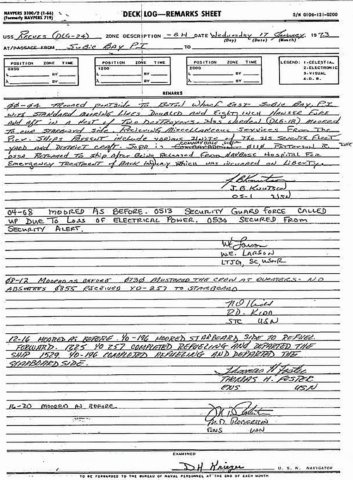 NAVPERS 3100/2 (7-66)
(Formerly NAVPERS 719)
DECK LOG—REMARKS SHEET
S/N 0106-131-0200
USS REEVES (DLG-24) ZONE DESCRIPTION -8H DATE Wednesday 17 January 1973
(Day) (Date) (Month)
AT/PASSAGE FROM SUBIC BAY P.I. TO
POSITION ZONE TIME
POSITION ZONE TIME
POSITION ZONE TIME
LEGEND: 1-CELESTIAL
0800
1200
2000
2-ELECTRONIC
3-VISUAL
4-D.R.
L BY
L BY
L BY
λ BY
λ BY
λ BY
REMARKS
00-04 Moored portside to Wharf East Subic Bay, P.I.
with standard mooring lines doubled and eight inch hauser fore
and aft in a nest of two destroyers. USS (DLG-18) moored
to our starboard side. Receiving miscellaneous services from the
pier. Ships present include various units of the U.S. Seventh Fleet
yard and district craft. SOPA is
returned to ship after being released from Hospital for
emergency treatment of back injury which was incurred on liberty.
J.B. Knutson
USN
04-08 MOORED AS BEFORE. 0513 SECURITY GUARD FORCE CALLED
UP DUE TO LOSS OF ELECTRICAL POWER. 0530 SECURED FROM
SECURITY ALERT.
W.E. LARSON
LTJG, SC, USNR
08-12 MOORED AS BEFORE 0730 MUSTERED THE CREW AT QUARTERS. NO
ABSENTEES 0855 RECEIVED YO-257 TO STARBOARD
R.D. KIDD
STC USN
12-16 MOORED AS BEFORE. YO-196 MOORED STARBOARD SIDE TO REFUEL
FORWARD. 1225 YO 257 COMPLETED REFUELING AND DEPARTED THE
SHIP 1529 YO-196 COMPLETED REFUELING AND DEPARTED THE
STARBOARD SIDE.
THOMAS H. FOSTER
ENS USN
16-20 MOORED AS BEFORE.
ENS USN
EXAMINED
U. S. N. NAVIGATOR
TO BE FORWARDED TO THE BUREAU OF NAVAL PERSONNEL AT THE END OF EACH MONTH